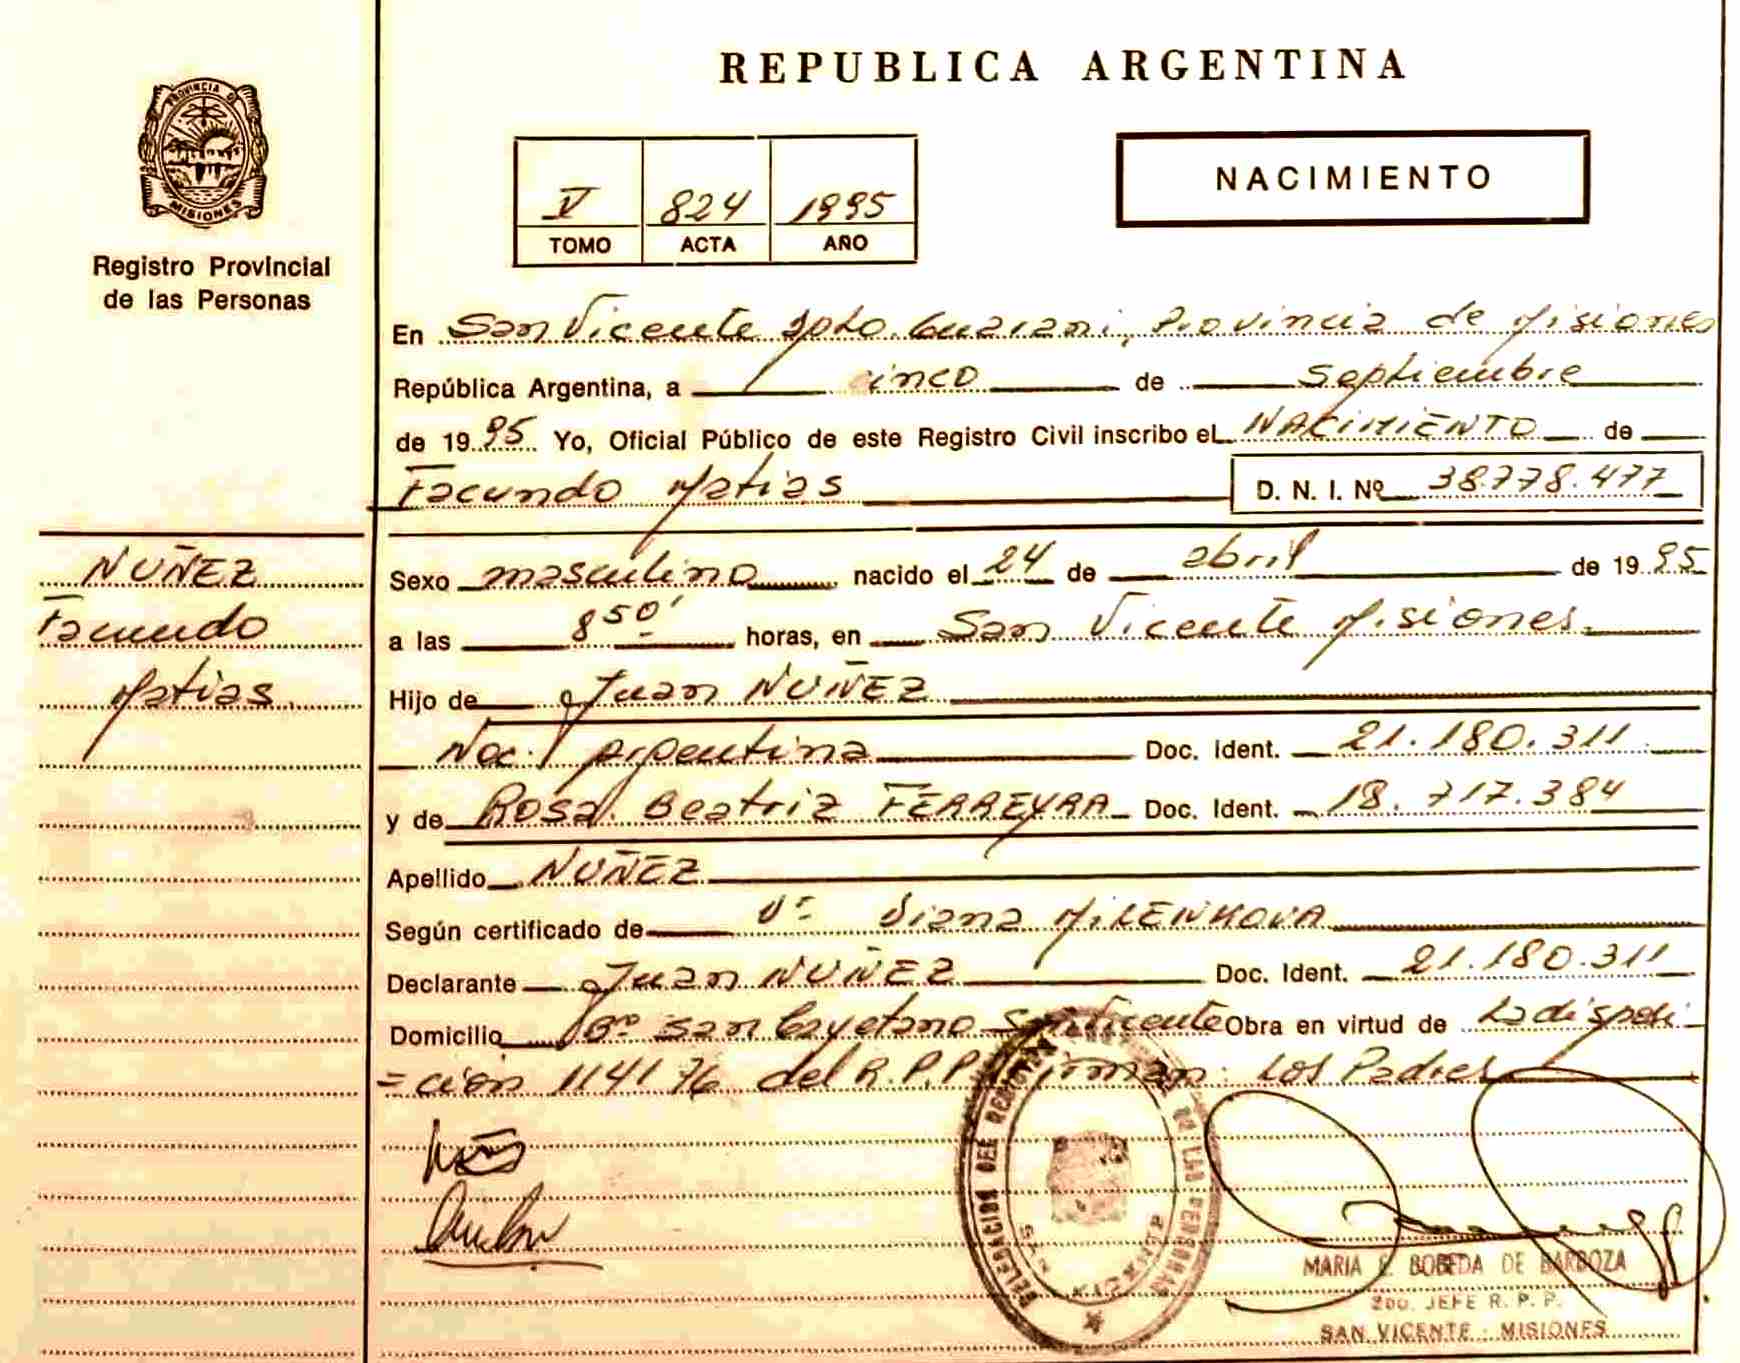 REPUBLICA ARGENTINA
PROVINCIA DE
MISIONES
Registro Provincial
de las Personas
V 824 1995
TOMO ACTA AÑO
NACIMIENTO
En San Vicente Dpto. Guarani, Provincia de Misiones
República Argentina, a cinco de septiembre
de 1995 Yo, Oficial Público de este Registro Civil inscribo eL NACIMIENTO de
Facundo Matias D. N. I. Nº 38.778.477
NUÑEZ
Facundo
Matias
Sexo masculino nacido el 24 de abril de 1995
a las 8 50' horas, en San Vicente Misiones.
Hijo de Juan NUÑEZ
Nac. Argentina Doc. Ident. 21.180.311
y de Rosa Beatriz FERREYRA Doc. Ident. 18.717.384
Apellido NUÑEZ
Según certificado de Dr. Diana MILENKOVA
Declarante Juan NUÑEZ Doc. Ident. 21.180.311
Domicilio Bº San Cayetano San Vicente Obra en virtud de La disposi
=ción 1141/76 del R.P.P. Firman: Los Padres
DELEGACION DEL REGISTRO DE LAS PERSONAS
SAN VICENTE
MARIA BOBEDA DE BARBOZA
2do. JEFE R. P. P.
SAN VICENTE - MISIONES